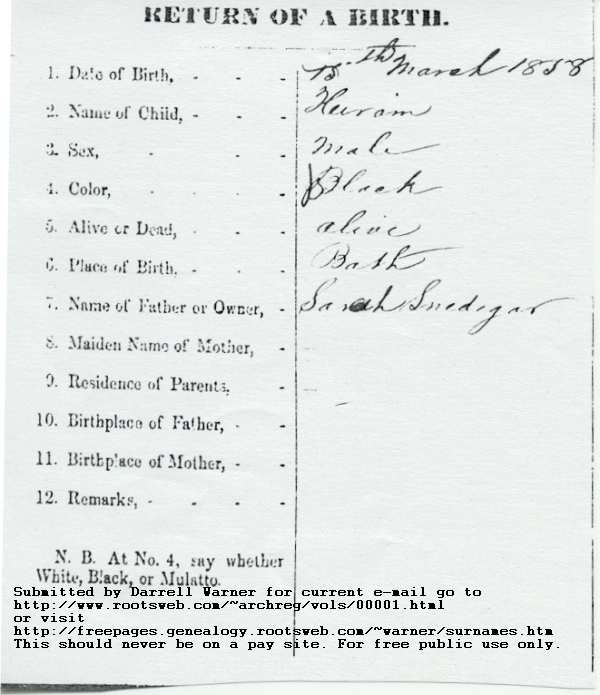 RETURN OF A BIRTH.
1. Date of Birth, - - - 15th March 1858
2. Name of Child, - - - Heiram
3. Sex, - - - Male
4. Color, - - - - Black
5. Alive or Dead, - - - alive
6. Place of Birth, - - - Bath
7. Name of Father or Owner, - Sarah Snedegar
8. Maiden Name of Mother, -
9. Residence of Parents, -
10. Birthplace of Father, - -
11. Birthplace of Mother, - -
12. Remarks, - - - -
N. B. At No. 4, say whether
White, Black, or Mulatto.
Submitted by Darrell Warner for current e-mail go to
http://www.rootsweb.com/~archreg/vols/00001.html
or visit
http://freepages.genealogy.rootsweb.com/~warner/surnames.htm
This should never be on a pay site. For free public use only.